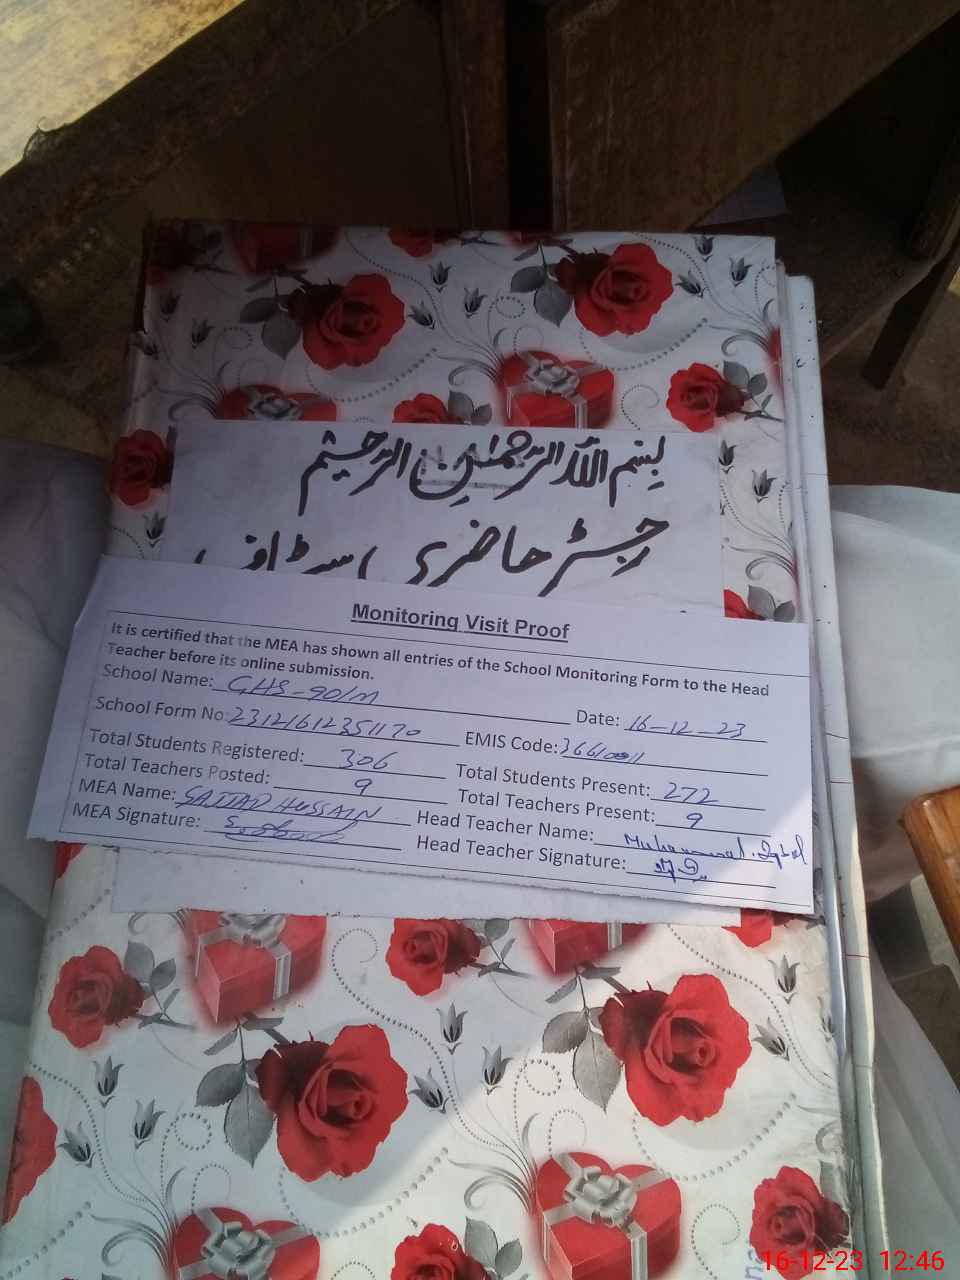 بسم اللہ الرحمٰن الرحیم
رجسٹر حاضری سٹاف
Monitoring Visit Proof
It is certified that the MEA has shown all entries of the School Monitoring Form to the Head
Teacher before its online submission.
School Name: GHS-90/M Date: 16-12-23
School Form No: 23121612351170 EMIS Code:
Total Students Registered: 306 Total Students Present: 272
Total Teachers Posted: 9 Total Teachers Present: 9
MEA Name: SAJJAD HUSSAIN Head Teacher Name: Muhammad Iqbal
MEA Signature: Head Teacher Signature:
16-12-23 12:46